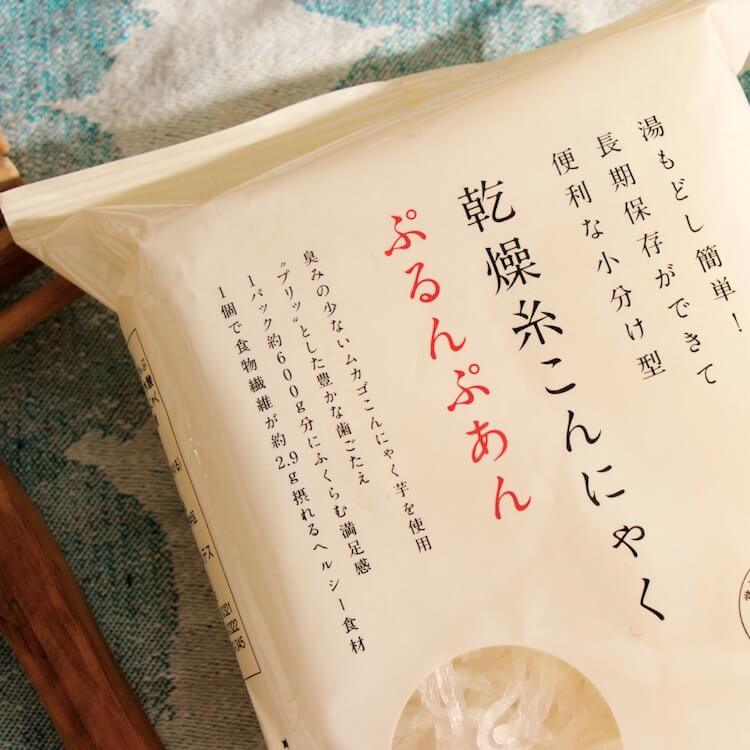 湯もどし簡単！
長期保存ができて
便利な小分け型
乾燥糸こんにゃく
ぷるんぷあん
臭みの少ないムカゴこんにゃく芋を使用
〝プリッ〟とした豊かな歯ごたえ
1パック約600g分にふくらむ満足感
1個で食物繊維が約2.9g摂れるヘルシー食材